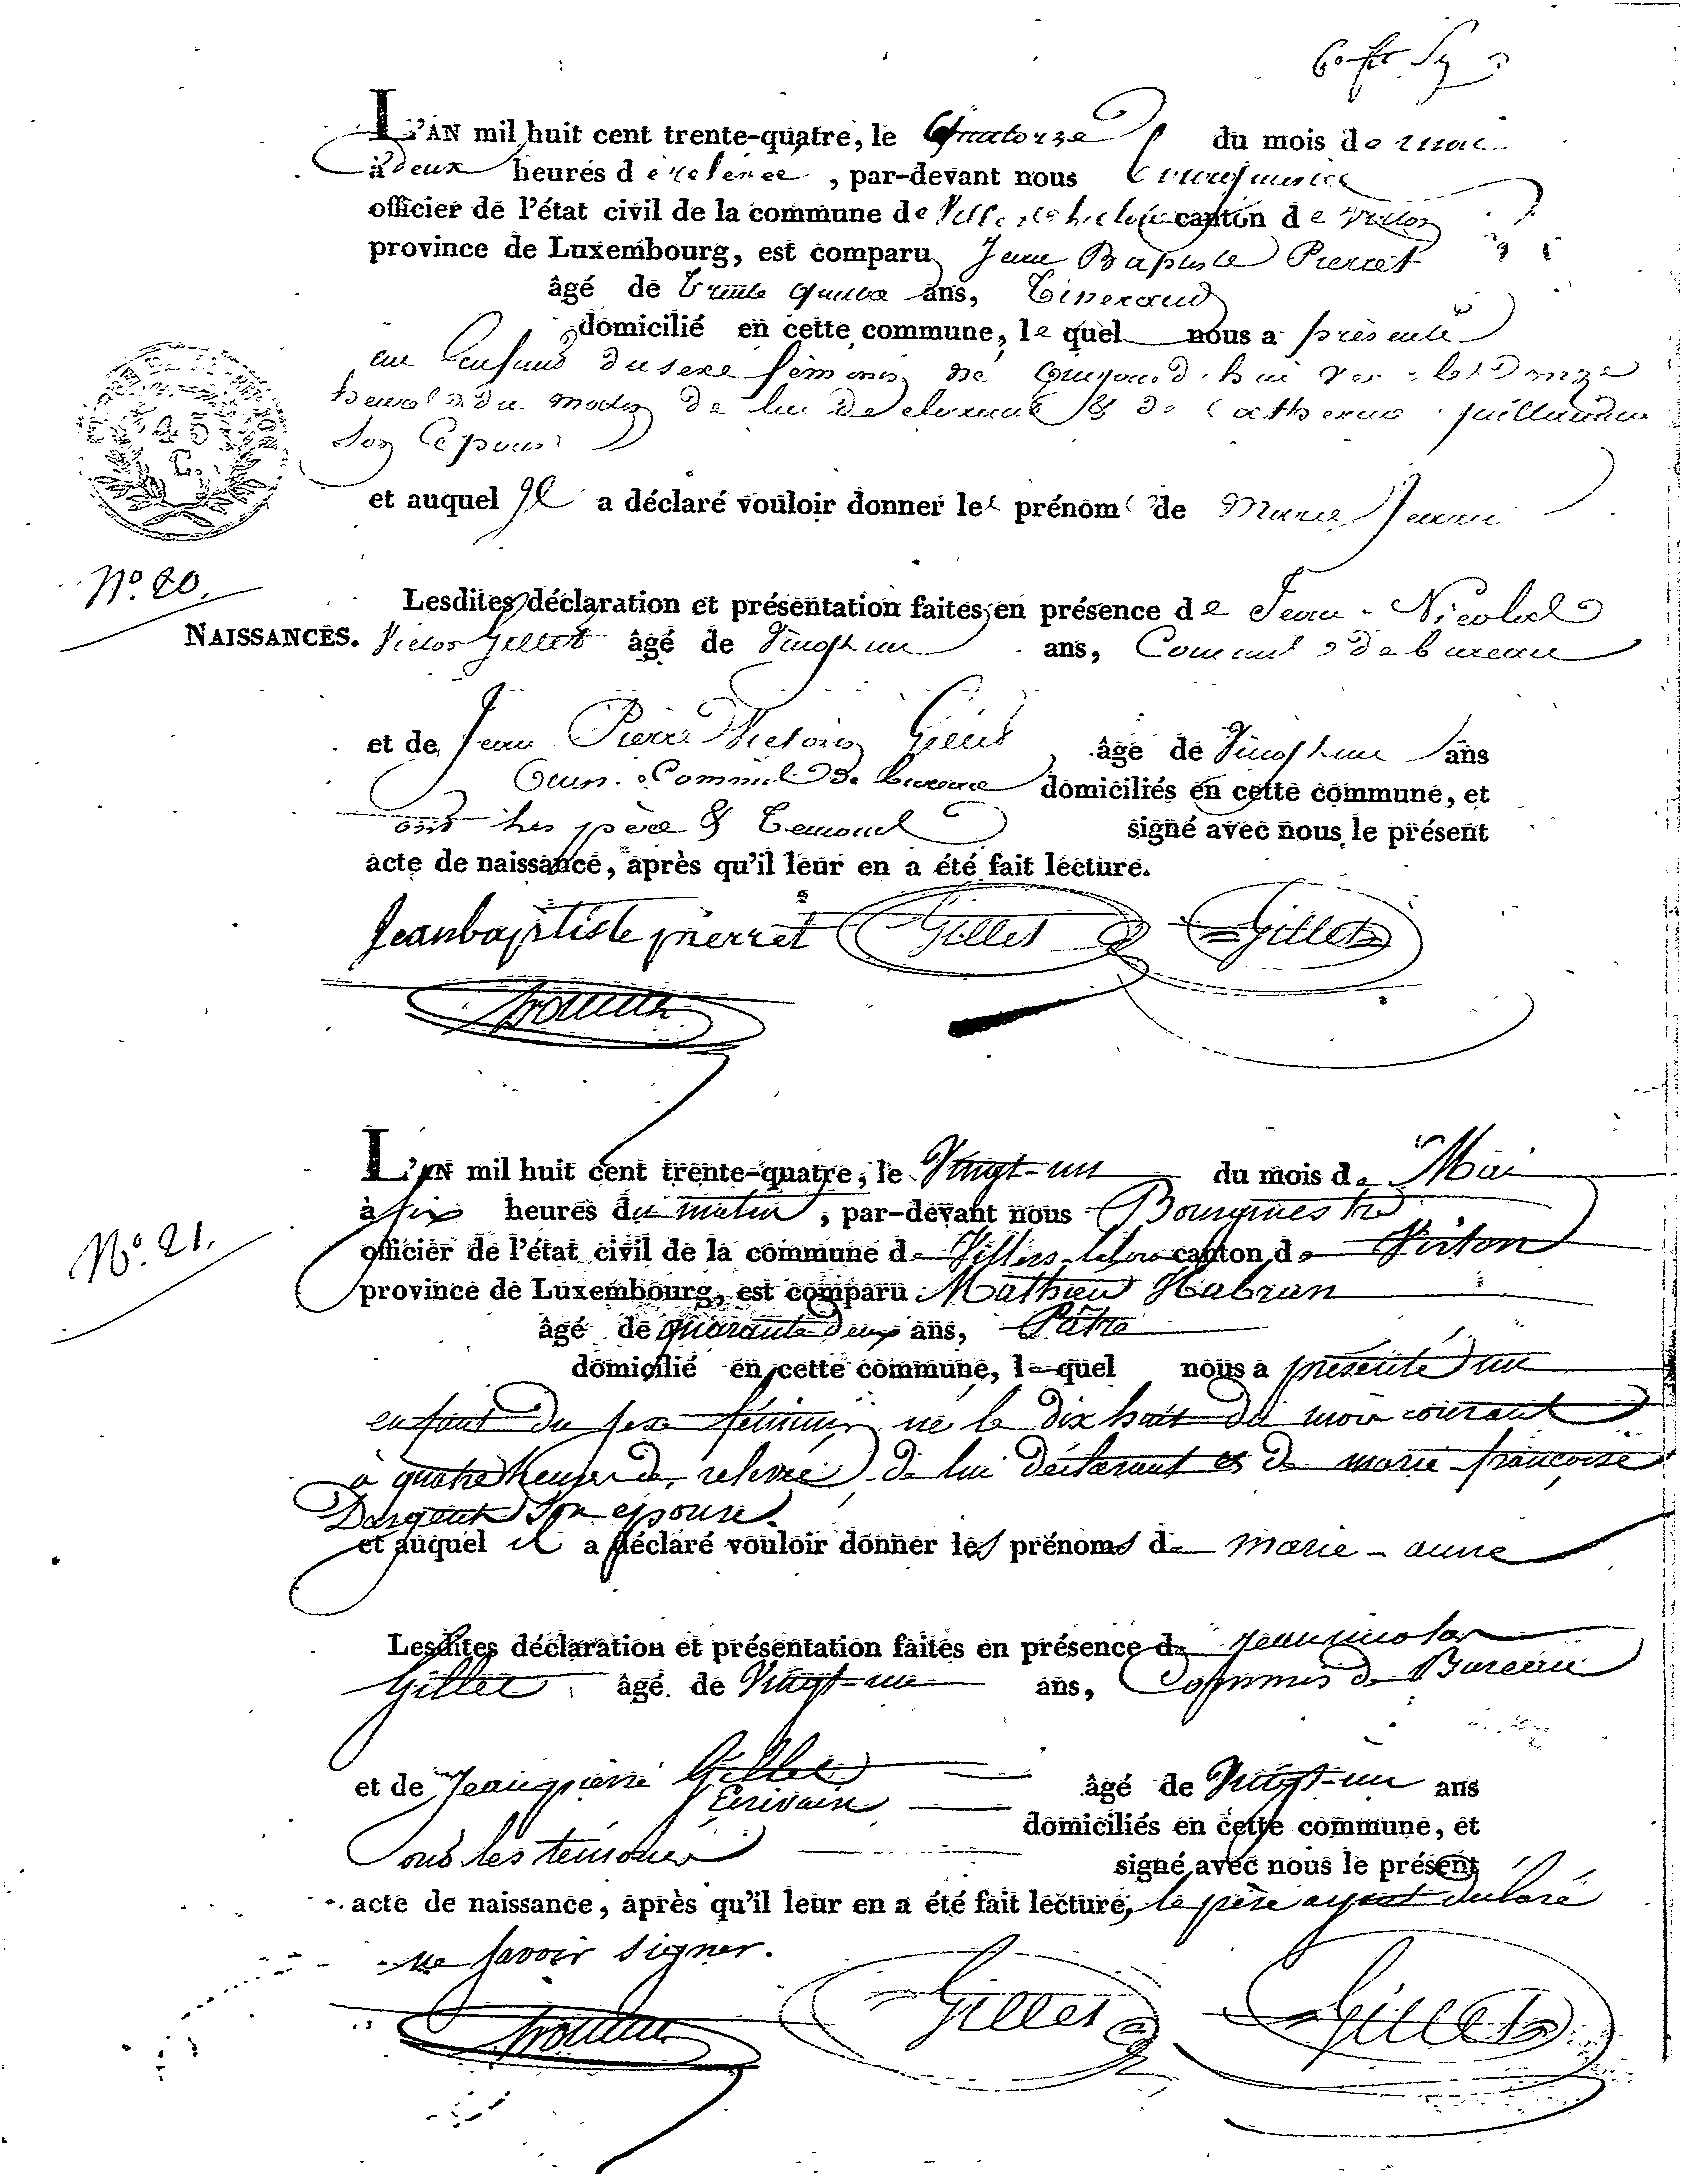 L'AN mil huit cent trente-quatre, le Quatorze du mois de mai
à deux heures de relevée, par-devant nous Bourgmestre
officier de l'état civil de la commune de Villers la loue canton de Virton
province de Luxembourg, est comparu Jean Baptiste Pierret
âgé de trente quatre ans, Tisserand
domicilié en cette commune, le quel nous a présenté
un Enfant du sexe féminin né aujourd'hui vers les onze
heures du matin de lui déclarant & de Catherine
son Epouse
et auquel Il a déclaré vouloir donner les prénoms de Marie Jeanne
45
C.
Nº. 20.
NAISSANCES.
Lesdites déclaration et présentation faites en présence de Jean-Nicolas
Victor Gillet âgé de Vingt un ans, Commis de bureau
et de Jean Pierre Victorin Gillet âgé de Vingt un ans
aussi Commis de bureau domiciliés en cette commune, et
ont les père & témoins signé avec nous le présent
acte de naissance, après qu'il leur en a été fait lecture.
Jeanbaptiste pierret Gillet Gillet
L'AN mil huit cent trente-quatre, le Vingt-un du mois de Mai
à six heures du matin, par-devant nous Bourgmestre
Nº. 21.
officier de l'état civil de la commune de Villers-laloue canton de Virton
province de Luxembourg, est comparu Mathieu Habran
âgé de quarante deux ans, Pâtre
domicilié en cette commune, le quel nous a présenté un
enfant du sexe féminin né le dix huit du mois courant
à quatre heures de relevée de lui déclarant et de marie françoise
Dargent son epouse.
et auquel il a déclaré vouloir donner les prénoms de marie-anne
Lesdites déclaration et présentation faites en présence de jean nicolas
Gillet âgé de Vingt-un ans, Commis de Bureau
et de Jean pierre Gillet âgé de Vingt-un ans
Ecrivain domiciliés en cette commune, et
ont les témoins signé avec nous le présent
acte de naissance, après qu'il leur en a été fait lecture, le père ayant déclaré
ne savoir signer.
Gillet Gillet